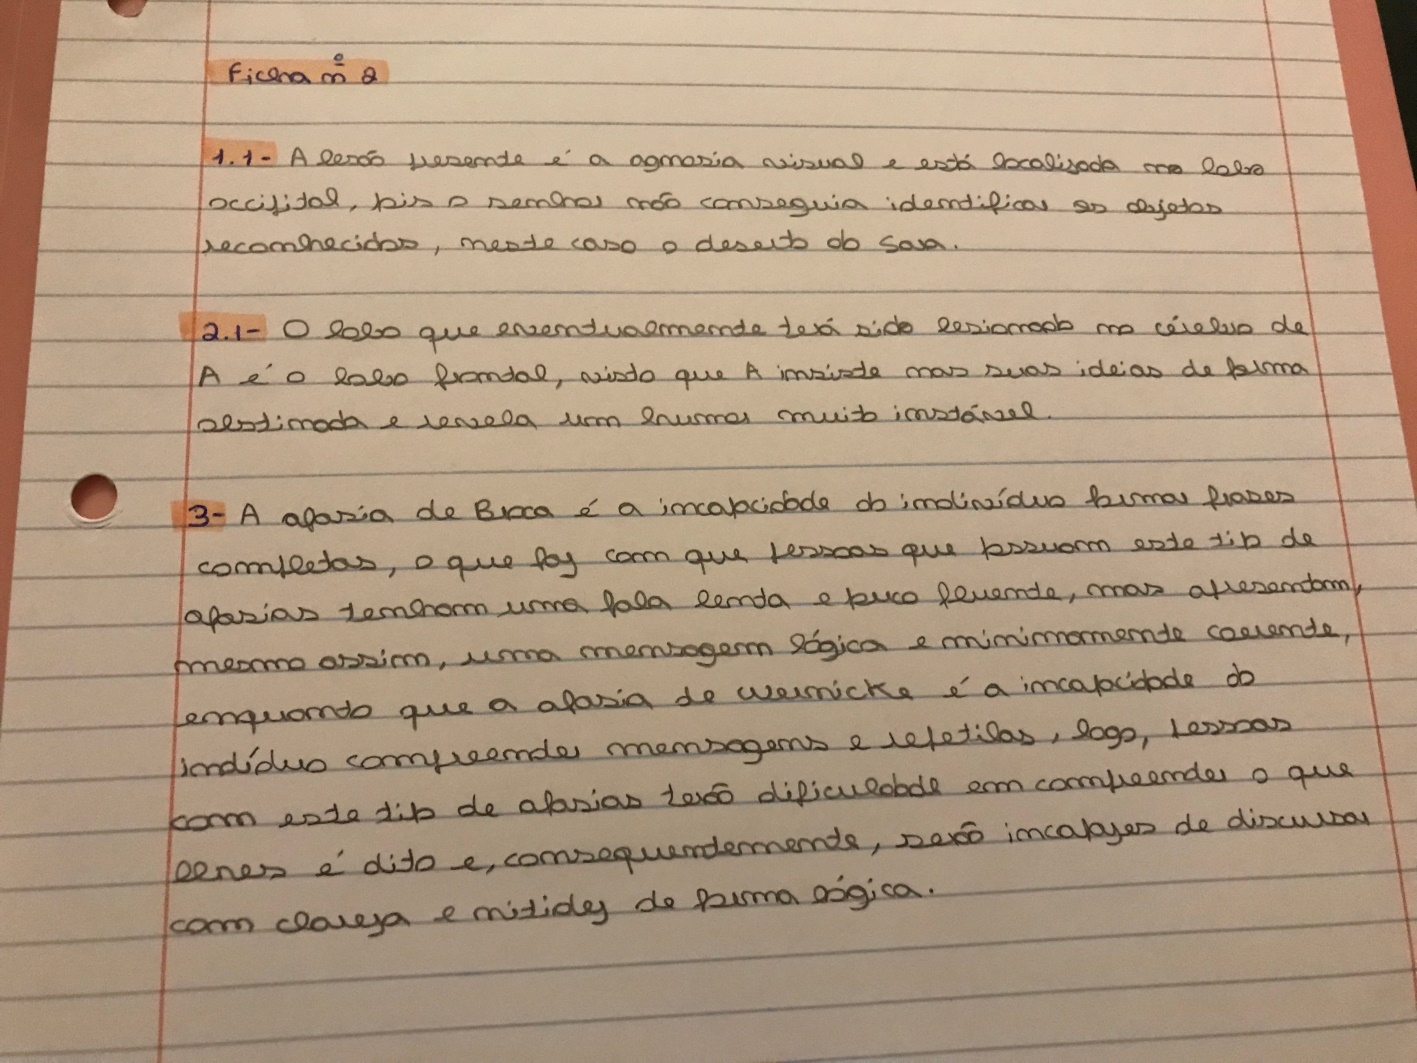 Ficha nº 2
1.1- A lesão presente é a agnosia visual e está localizada no lobo
occipital, pois o senhor não conseguia identificar os objetos
reconhecidos, neste caso o deserto do Sara.
2.1- O lobo que eventualmente terá sido lesionado no cérebro de
A é o lobo frontal, visto que A insiste nas suas ideias de forma
obstinada e revela um humor muito instável.
3- A afasia de Broca é a incapacidade do indivíduo formar frases
completas, o que faz com que pessoas que possuam este tipo de
afasias tenham uma fala lenta e pouco fluente, mas apresentam,
mesmo assim, uma mensagem lógica e minimamente coerente,
enquanto que a afasia de Wernicke é a incapacidade do
indíduo compreender mensagens e repetilas, logo, pessoas
com este tipo de afasias terão dificuldade em compreender o que
lenes é dito e, consequentemente, serão incapazes de discursar
com clareza e nitidez de forma lógica.